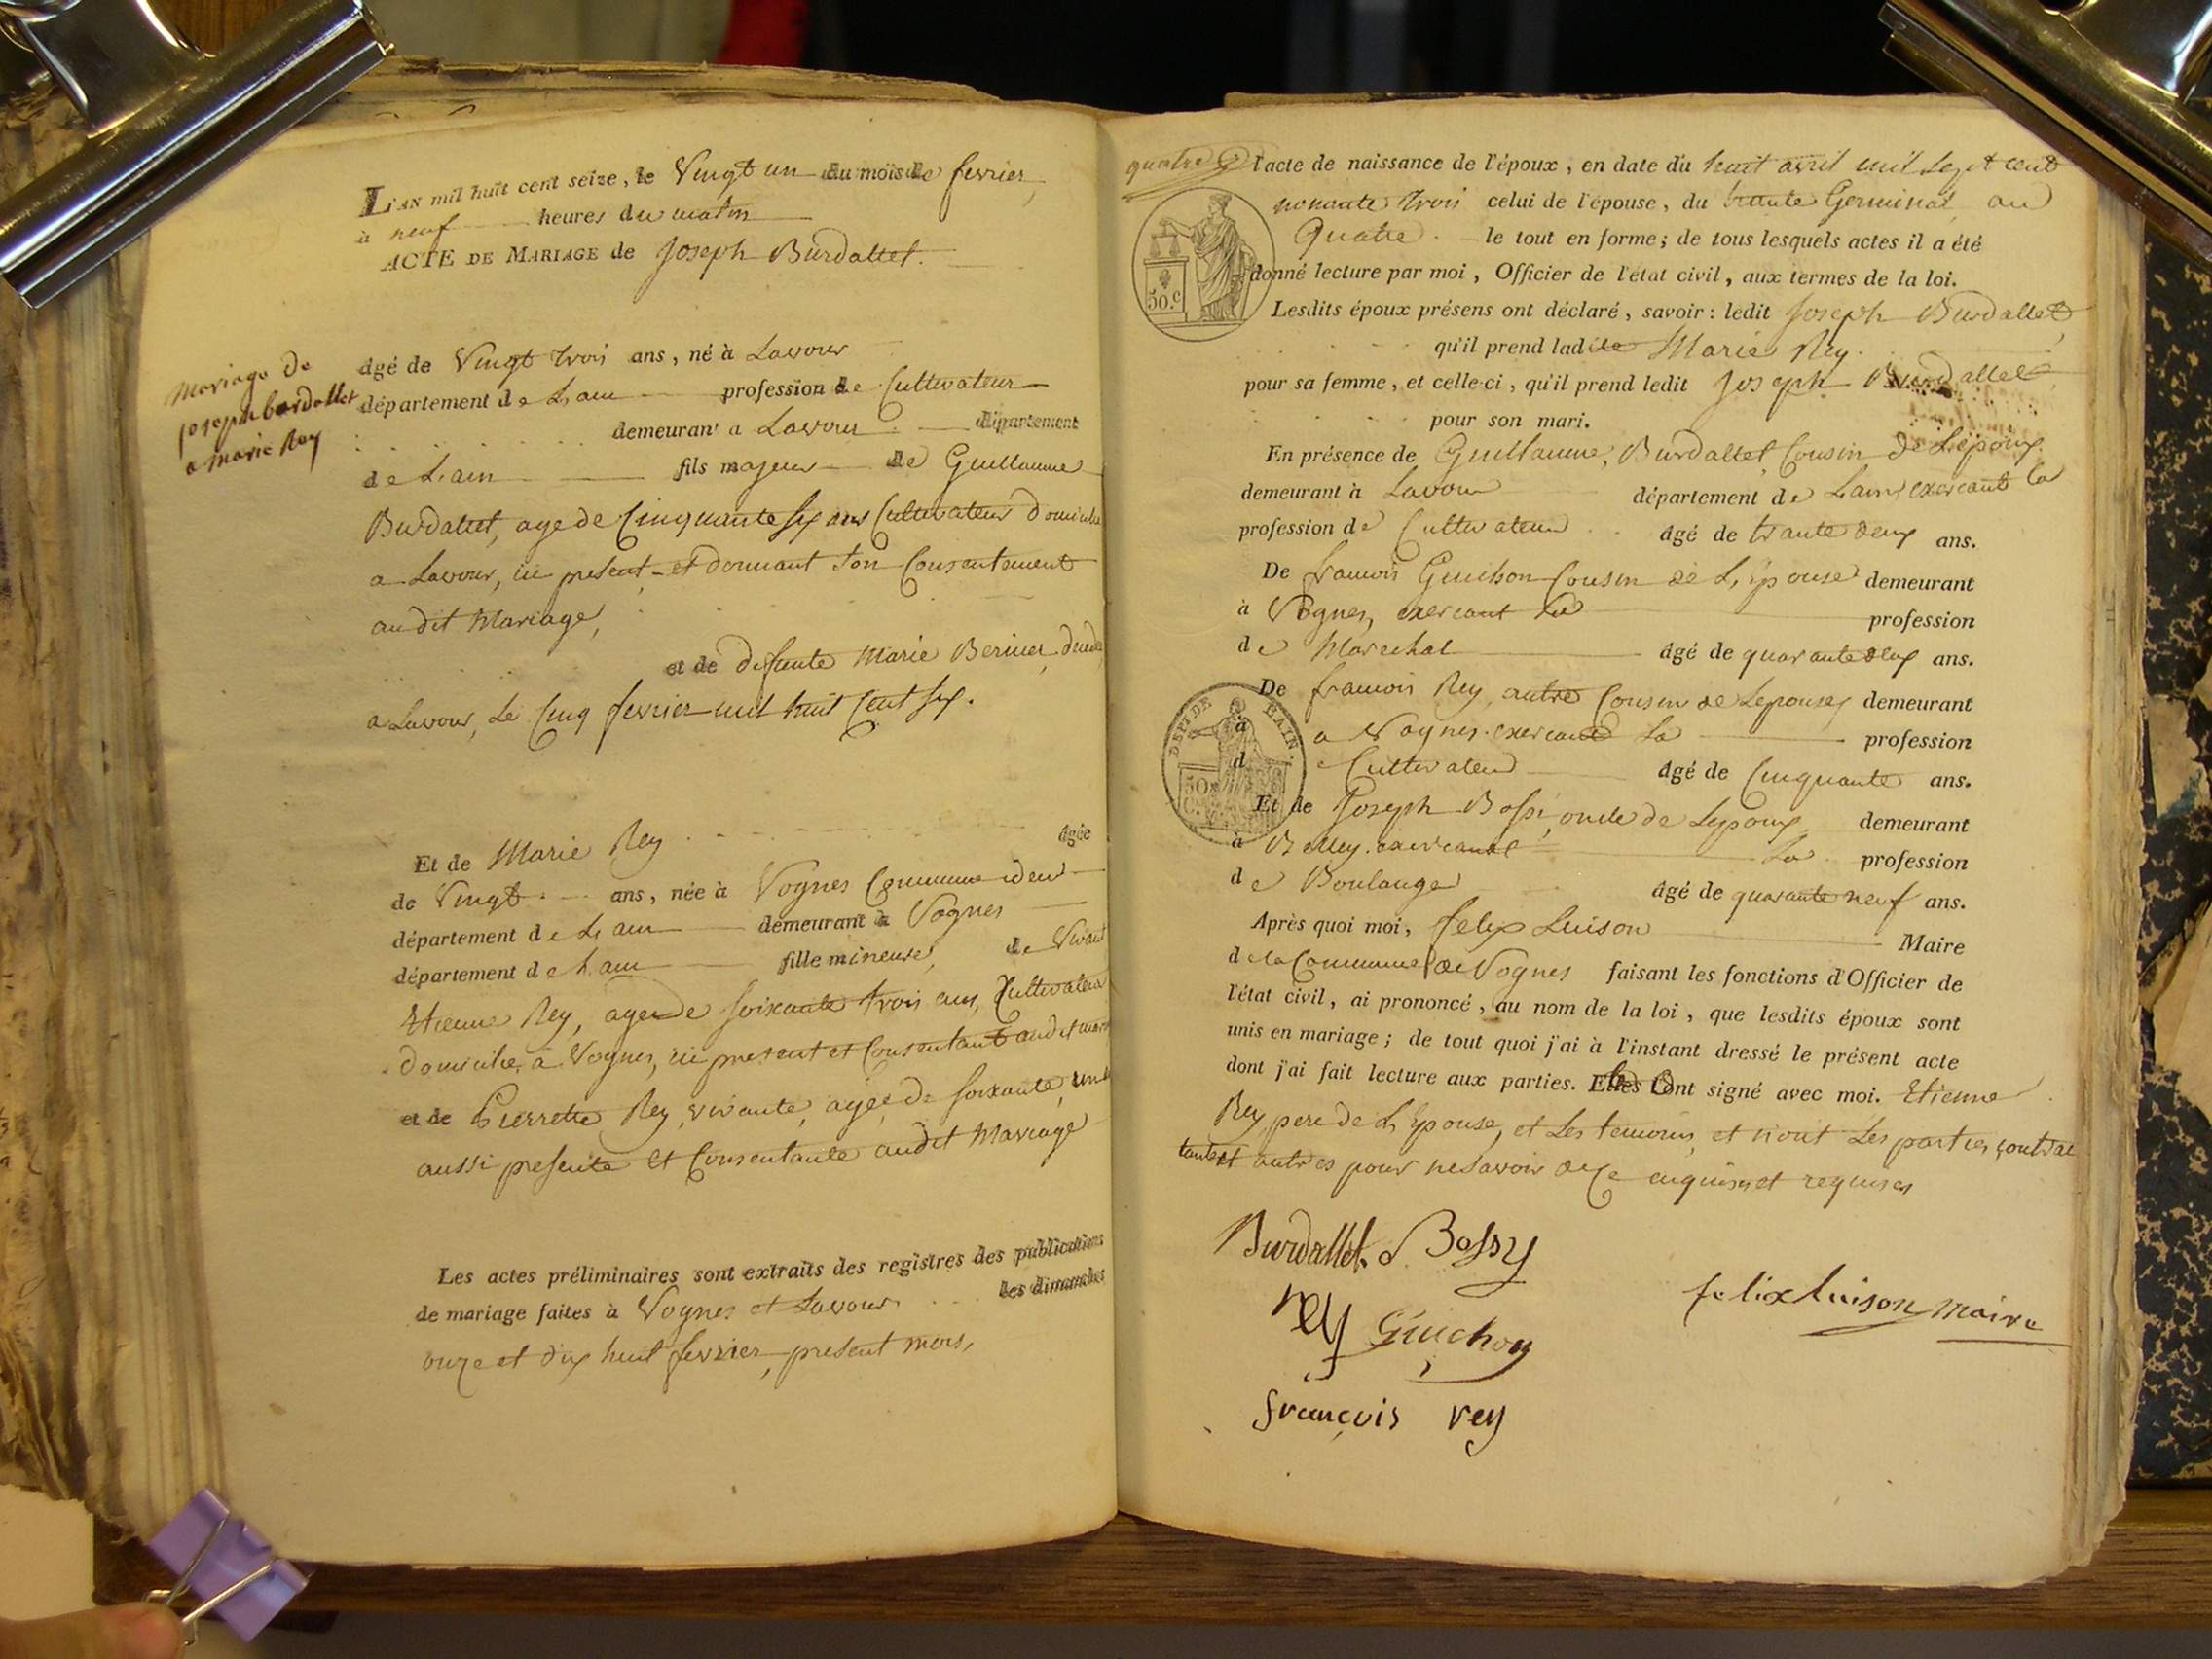 L'AN mil huit cent seize, le Vingt un du mois de fevrier,
à neuf heures du matin
ACTE DE MARIAGE de Joseph Burdallet.
mariage de
joseph burdallet
a marie Rey
âgé de Vingt trois ans, né à Lavour
département de L'ain profession de Cultivateur
demeurant a Lavour département
de L'ain fils majeur de Guillaume
Burdallet, agé de Cinquante six ans Cultivateur domicilié
a Lavour, ici present et donnant son Consentement
audit Mariage,
et de defunte Marie Bernier, decedée
a Lavour, Le Cinq fevrier mil huit Cent six.
Et de Marie Rey âgée
de Vingt ans, née à Vognes Commune idem
département de L'ain demeurant à Vognes
département de L'ain fille mineure, de Vivant
Etienne Rey, agé de soixante trois ans, Cultivateur
domicilié à Vognes, ici present et Consentant audit mariage
et de Pierrette Rey, vivante, agée de soixante un
aussi presente et Consentante audit Mariage
Les actes préliminaires sont extraits des registres des publications
de mariage faites à Vognes et Lavour les dimanches
onze et dix huit fevrier, present mois,
quatre
l'acte de naissance de l'époux, en date du huit avril mil sept cent
nonante trois celui de l'épouse, du trente Germinal an
Quatre le tout en forme; de tous lesquels actes il a été
donné lecture par moi, Officier de l'état civil, aux termes de la loi.
50.c
Lesdits époux présens ont déclaré, savoir: ledit Joseph Burdallet
qu'il prend ladite Marie Rey
pour sa femme, et celle-ci, qu'il prend ledit Joseph Burdallet
pour son mari.
En présence de Guillaume, Burdallet Cousin de L'époux
demeurant à Lavour département de L'ain, exercant la
profession de Cultivateur âgé de trante deux ans.
De francois Guichon Cousin de L'épouse demeurant
à Vognes, exercant la profession
de Marechal âgé de quarante deux ans.
De francois Rey, autre Cousin de Lepouse, demeurant
à a Vognes exercant La profession
de Cultivateur âgé de Cinquante ans.
DEP.T DE L'AIN.
50 C.
Et de Joseph Bossi, oncle de Lepoux, demeurant
à Belley exercant La profession
de Boulanger âgé de quarante neuf ans.
Après quoi moi, felix Luison Maire
de la Commune de Vognes faisant les fonctions d'Officier de
l'état civil, ai prononcé, au nom de la loi, que lesdits époux sont
unis en mariage; de tout quoi j'ai à l'instant dressé le présent acte
dont j'ai fait lecture aux parties. ont signé avec moi. Etienne
Rey, pere de L'Epouse, et Les temoins et n'ont Les parties contrac
tantes autres pour ne savoir de Ce enquises et requises
Burdallet. J. Bossy
rey Guichon
felix luison maire
françois rey